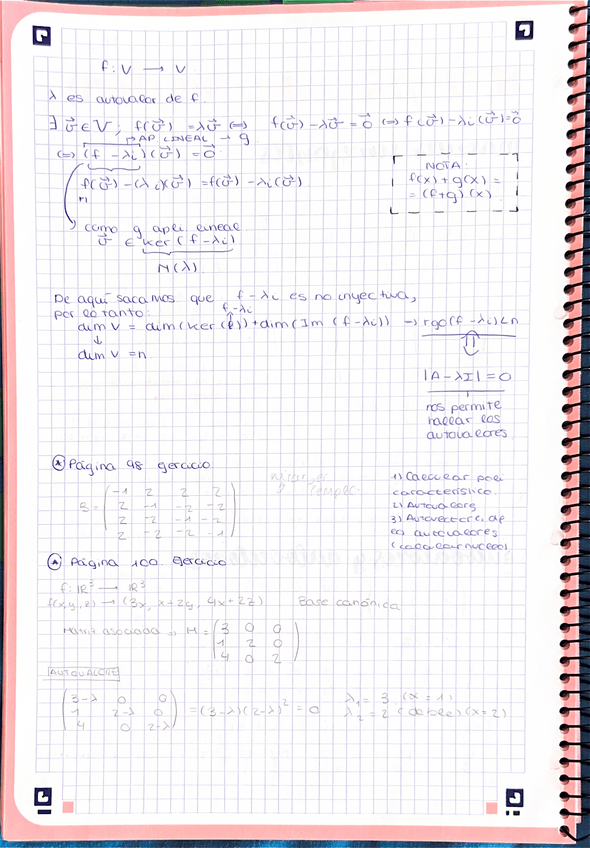 f: V → V
λ es autovalor de f.
∃ v⃗ ∈ V; f(v⃗) = λv⃗ ⇔ f(v⃗) - λv⃗ = 0⃗ ⇔ f(v⃗) - λi(v⃗) = 0⃗
AP LINEAL → g
⇔ (f - λi)(v⃗) = 0⃗
f(v⃗) - (λi)(v⃗) = f(v⃗) - λi(v⃗)
NOTA:
f(x) + g(x) =
= (f+g)(x)
como g apli lineal
v⃗ ∈ ker (f - λi)
M(λ)
De aquí sacamos que f - λi es no inyectiva,
por lo tanto:
f - λi
dim V = dim(ker(f)) + dim(Im (f - λi)) → rgo(f - λi) < n
↓
dim V = n
|A - λI| = 0
nos permite
hallar los
autovalores
Página 98 ejercicio
B = (-1 2 2 2
2 -1 -2 -2
2 -2 -1 -2
2 -2 -2 -1)
1) Calcular poli
característico.
2) Autovalores
3) Autovectores de
los autovalores
(calcular núcleo)
Página 100. Ejercicio
f: ℝ³ → ℝ³
f(x,y,z) → (3x, x+2y, 4x+2z) Base canónica
Matriz asociada ⇒ M = (3 0 0
1 2 0
4 0 2)
AUTOVALORES
(3-λ 0 0
1 2-λ 0
4 0 2-λ) = (3-λ)(2-λ)² = 0
λ₁ = 3 (x=1)
λ₂ = 2 (doble) (x=2)